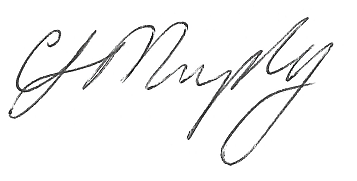 CJ Murphy